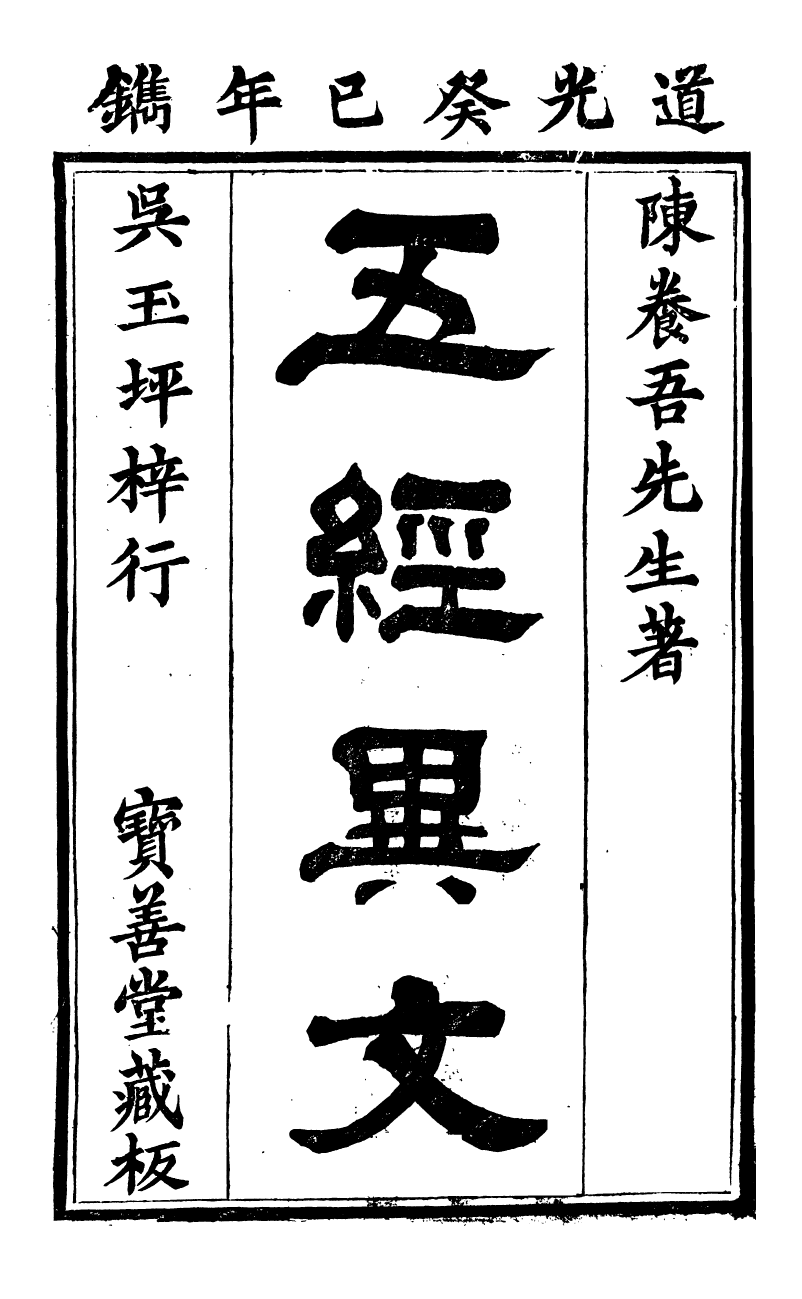 道光癸巳年鐫
陳養吾先生著
五經異文
吳玉坪梓行
寶善堂藏板